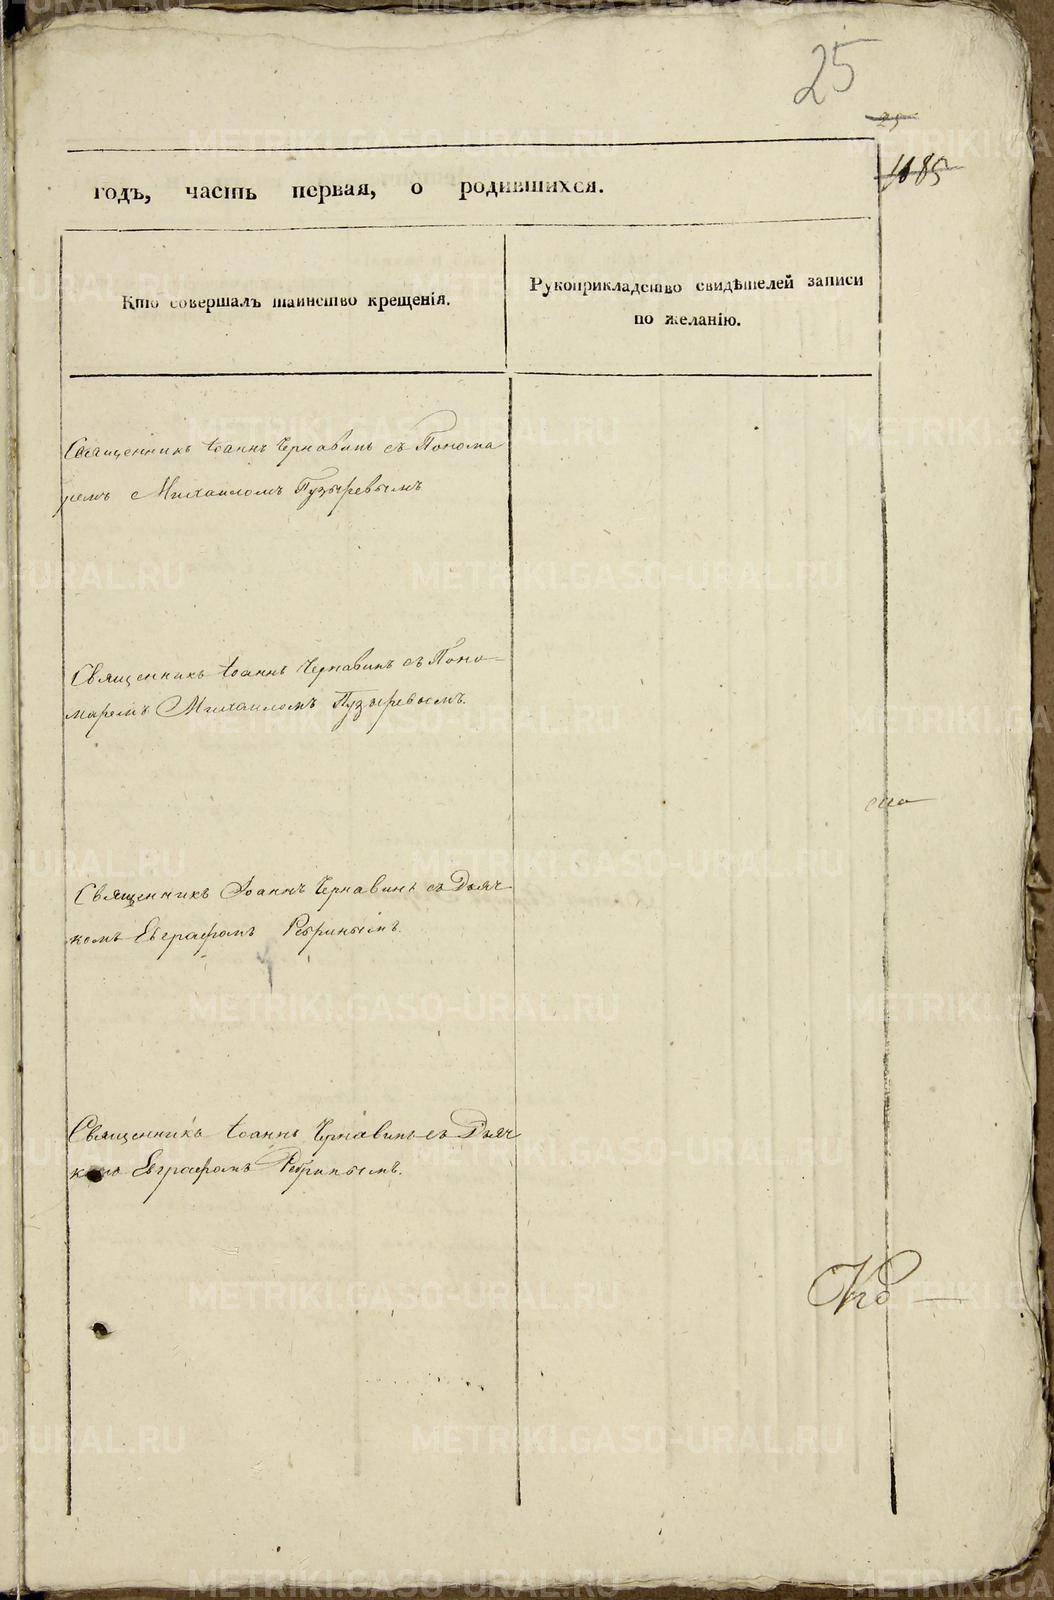 25
25
1085
годъ, часть первая, о родившихся.
Кто совершалъ таинство крещенія.
Рукоприкладство свидѣтелей записи
по желанію.
Священникъ Іоаннъ Чернавинъ съ Понома
ремъ Михаиломъ Пузыревымъ
Священникъ Іоаннъ Чернавинъ съ Поно-
маремъ Михаиломъ Пузыревымъ.
Священникъ Іоаннъ Чернавинъ съ Дьяч
комъ Евграфомъ Ребринымъ.
Священникъ Іоаннъ Чернавинъ съ Дьяч
комъ Евграфомъ Ребринымъ.
METRIKI.GASO-URAL.RU